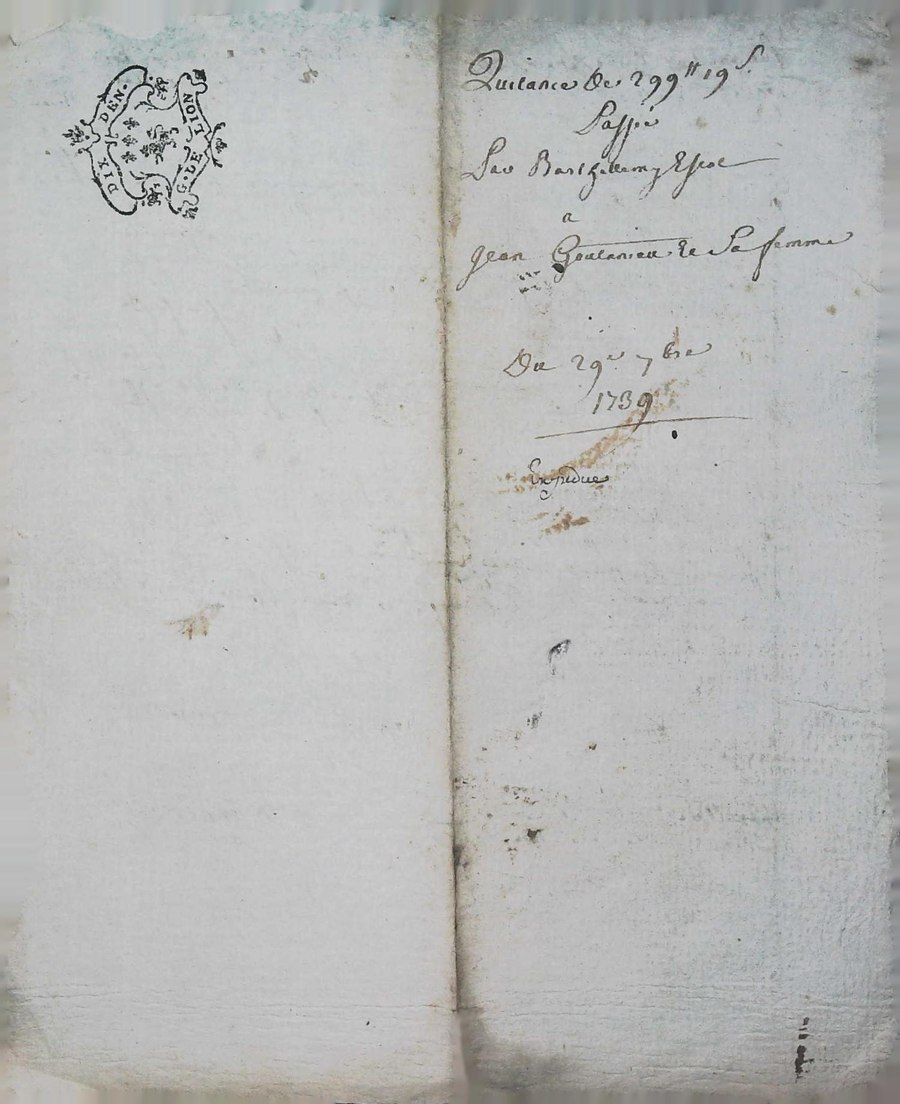 DIX DEN.
G. LE LION
Quitance De 299ᵗᵗ 19ˢ.
Passé
Par Barthellemy Escot
a
Jean et Sa femme
Du 29ᵉ 7bre
1739
Expedue